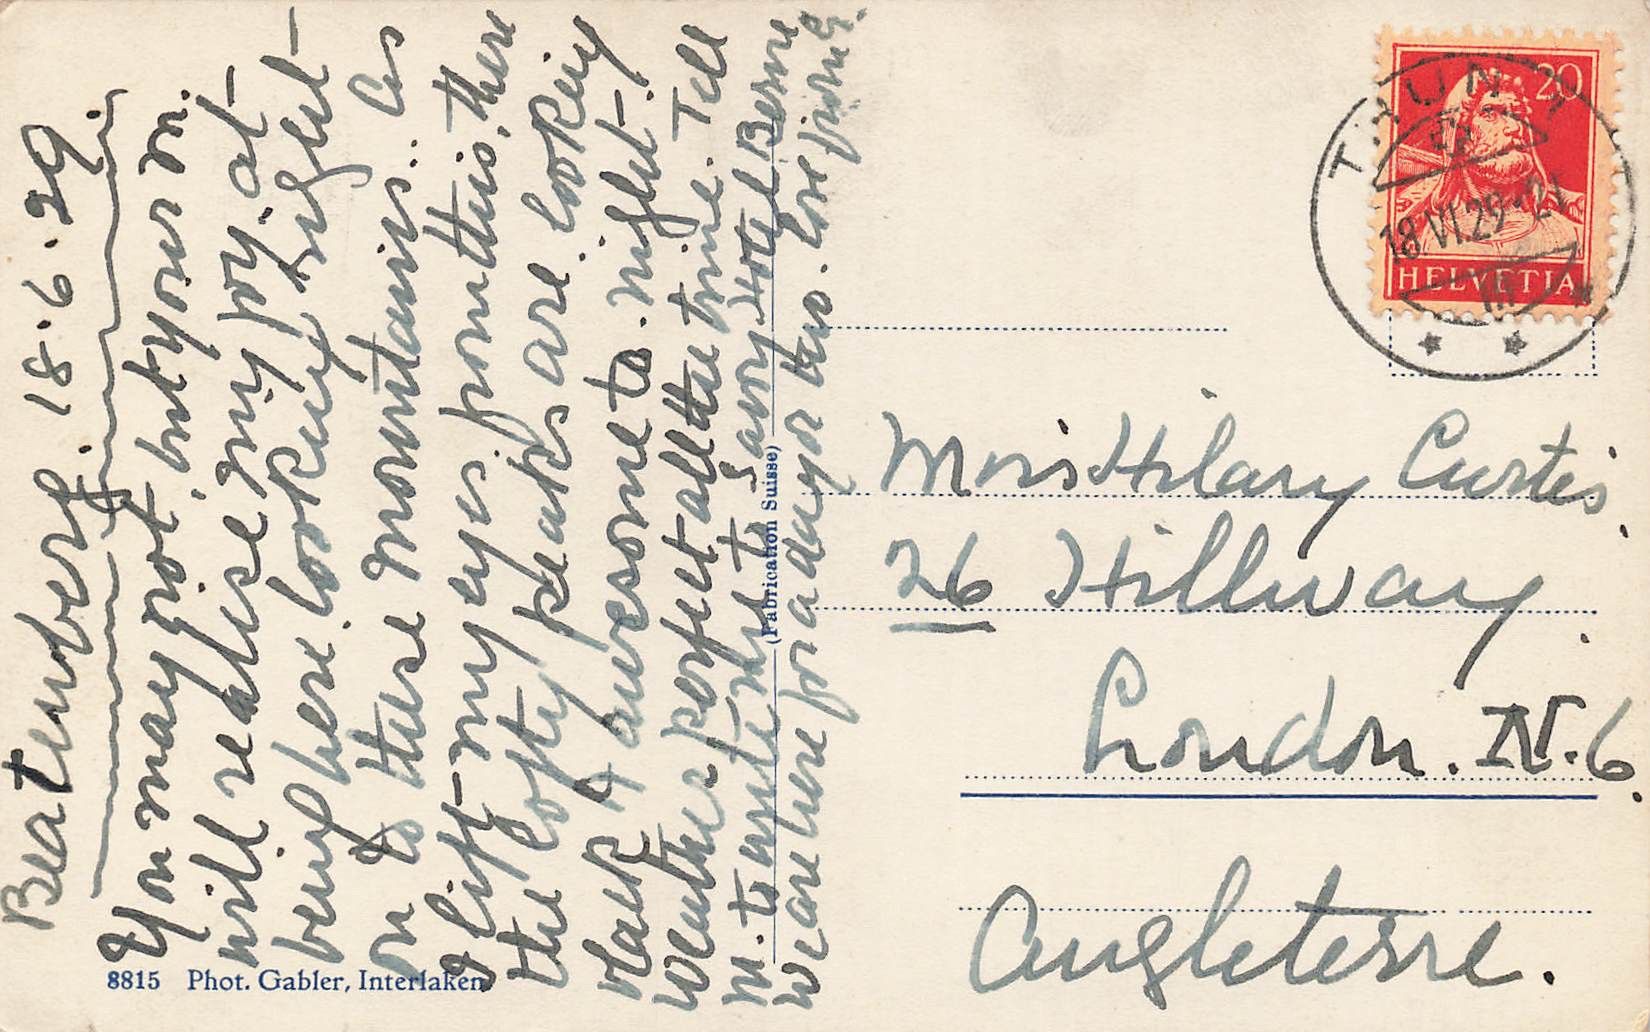 Beatenberg. 18.6.29.
You may not, but your M.
will realise my joy at
being here, looking right
on to these mountains. As
I lift my eyes from this, there
the lofty peaks are looking
black & awesome to-night.
Weather perfect all the time. Tell
M. to write me to Savoy Hotel Berne
We are here for a day or two. Love from G.
(Fabrication Suisse)
8815 Phot. Gabler, Interlaken
THUN 1
18.VI.29.-21
20
HELVETIA
Miss Hilary Curtis,
26 Hillway.
London. N.6.
Angleterre.